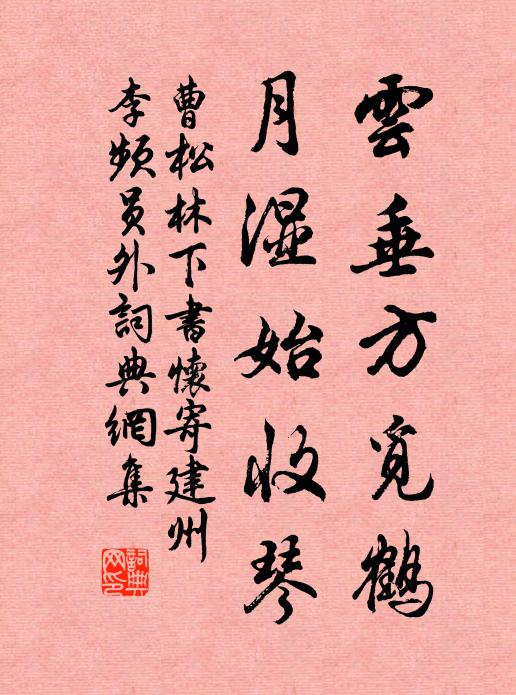 雲垂方覓鶴
月湿始收琴
曹松林下書懷寄建州
李頻員外詞典網集
詞典網印